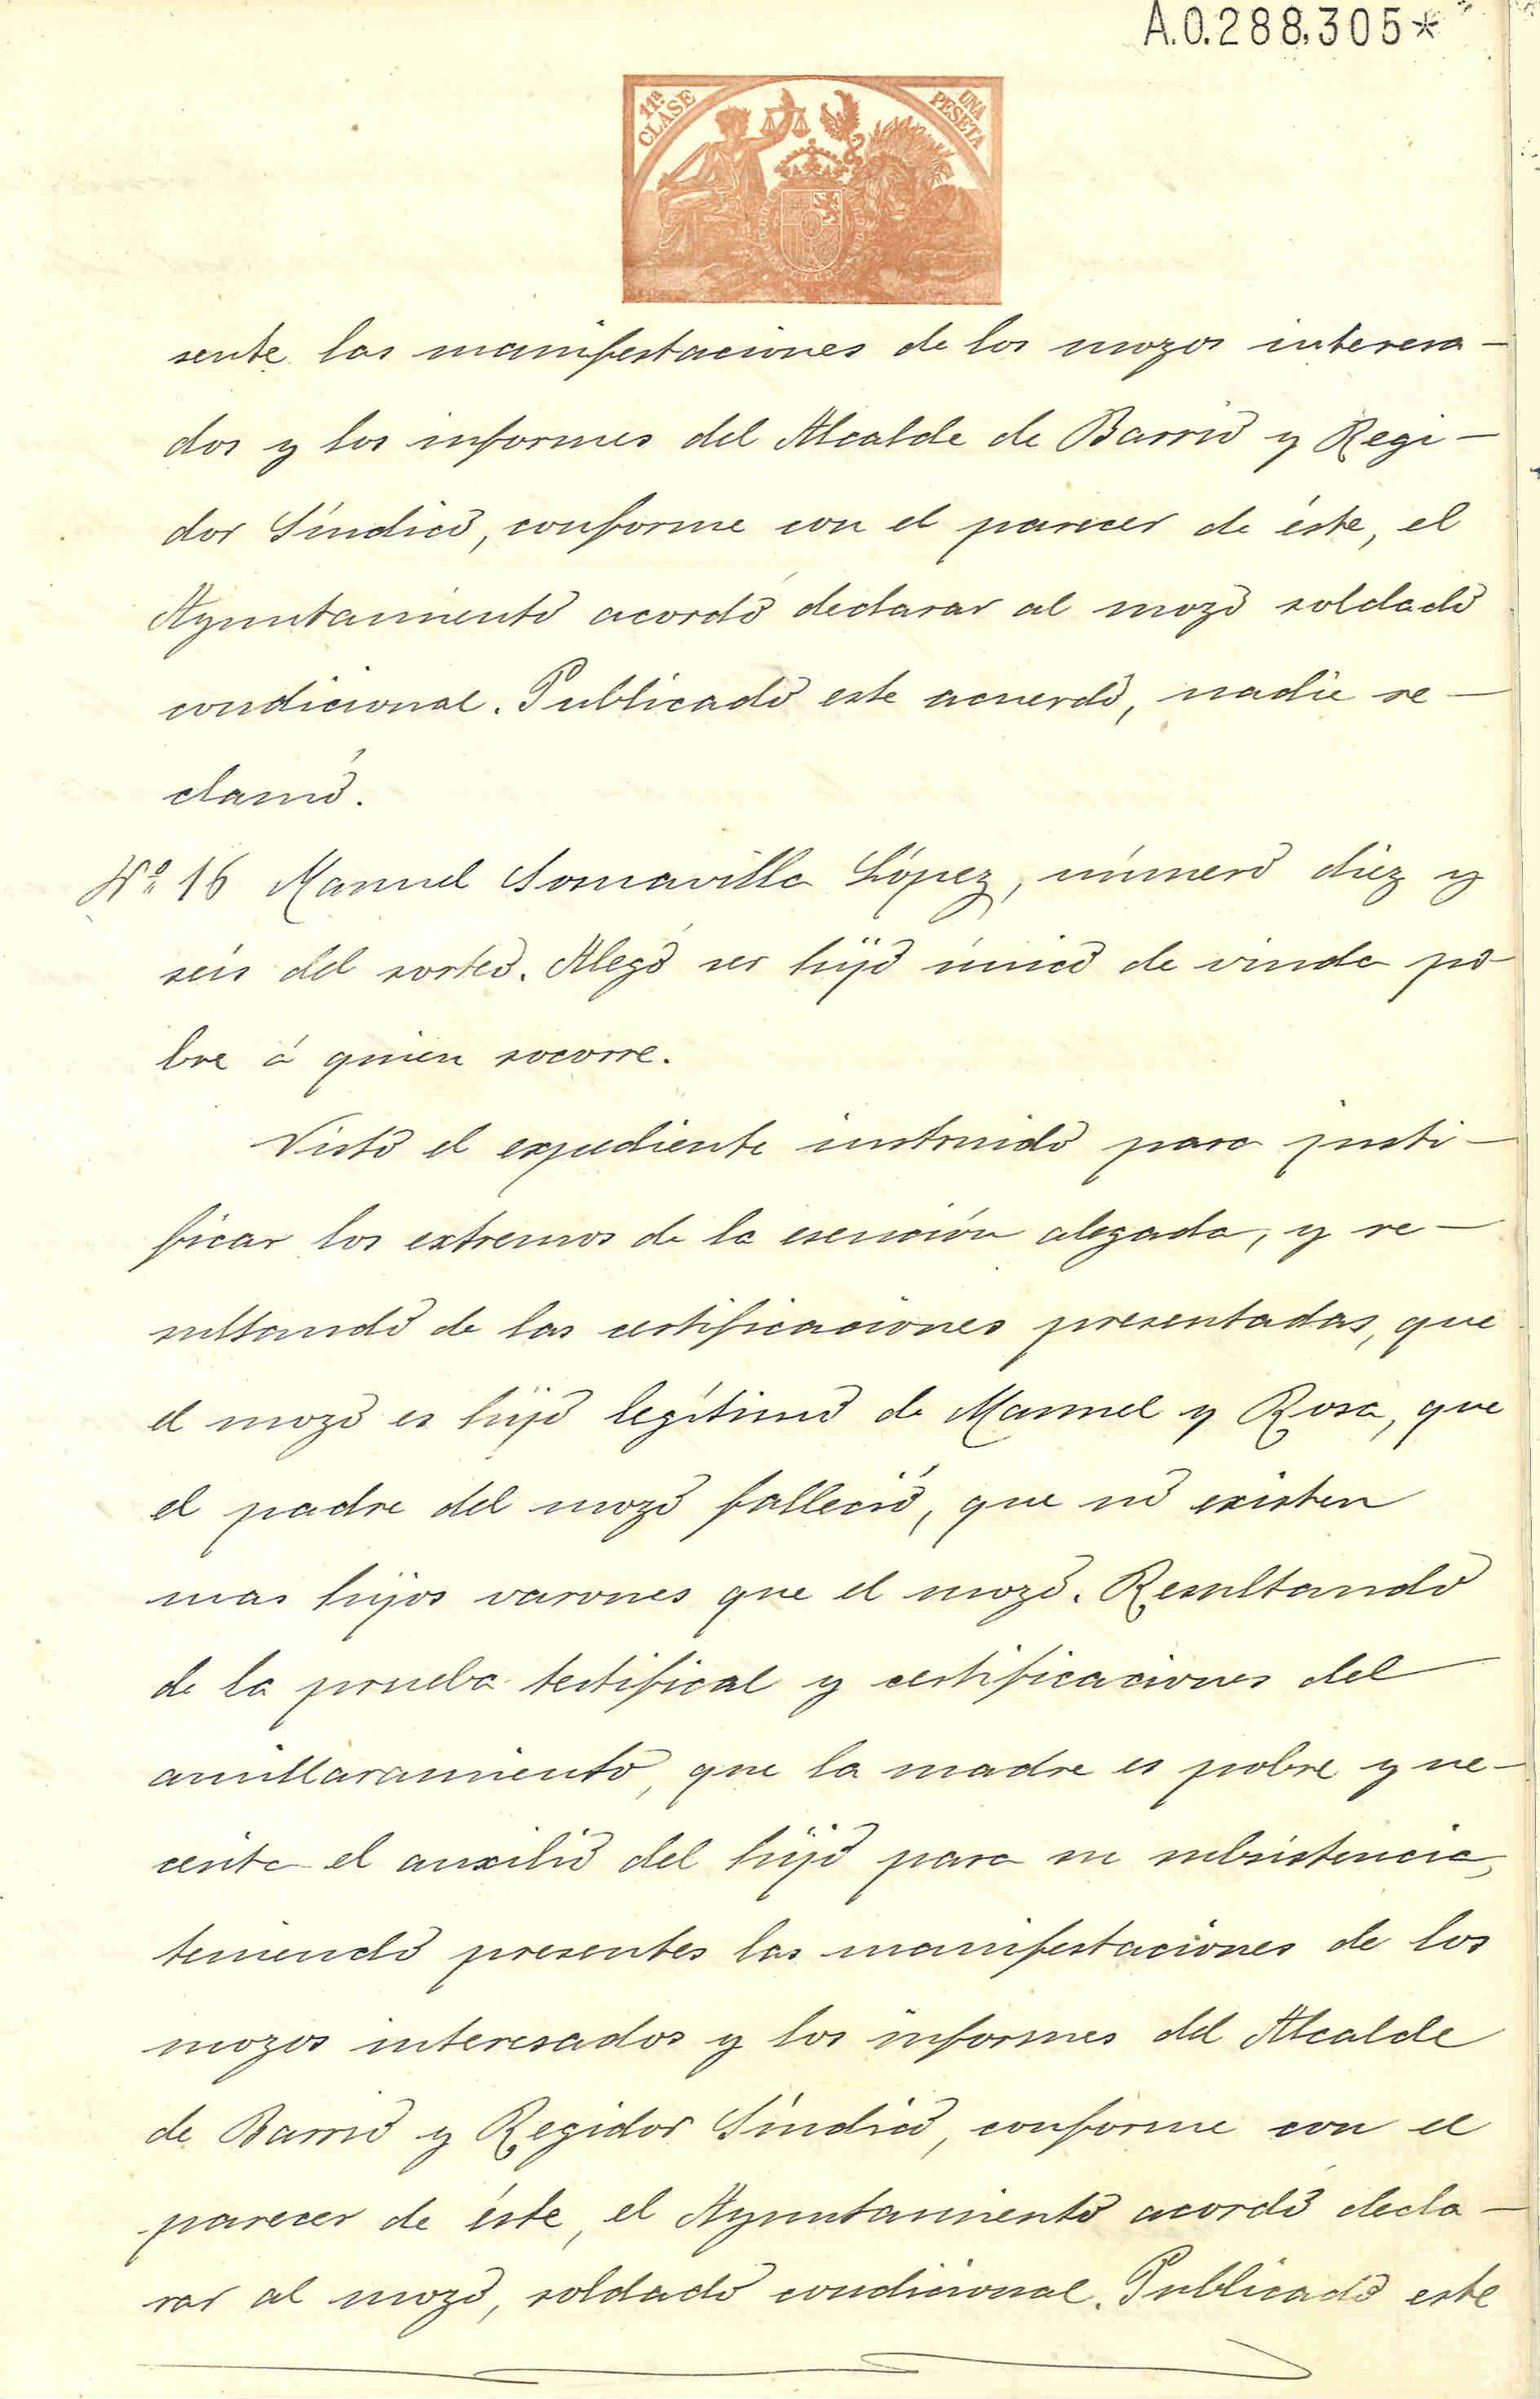 A.0.288,305*
11ª CLASE
UNA PESETA
sente las manifestaciones de los mozos interesa-
dos y los informes del Alcalde de Barrio y Regi-
dor Síndico, conforme con el parecer de éste, el
Ayuntamiento acordó declarar al mozo soldado
condicional. Publicado este acuerdo, nadie re-
clamó.
Nº 16 Manuel Somavilla López, número diez y
seis del sorteo. Alegó ser hijo único de viuda po-
bre á quien socorre.
Visto el expediente instruido para justi-
ficar los extremos de la esención alegada, y re-
sultando de las certificaciones presentadas, que
el mozo es hijo legítimo de Manuel y Rosa, que
el padre del mozo falleció, que no existen
mas hijos varones que el mozo. Resultando
de la prueba testifical y certificaciones del
amillaramiento, que la madre es pobre y ne-
cesita el auxilio del hijo para su subsistencia,
teniendo presentes las manifestaciones de los
mozos interesados y los informes del Alcalde
de Barrio y Regidor Síndico, conforme con el
parecer de éste, el Ayuntamiento acordó decla-
rar al mozo, soldado condicional. Publicado este